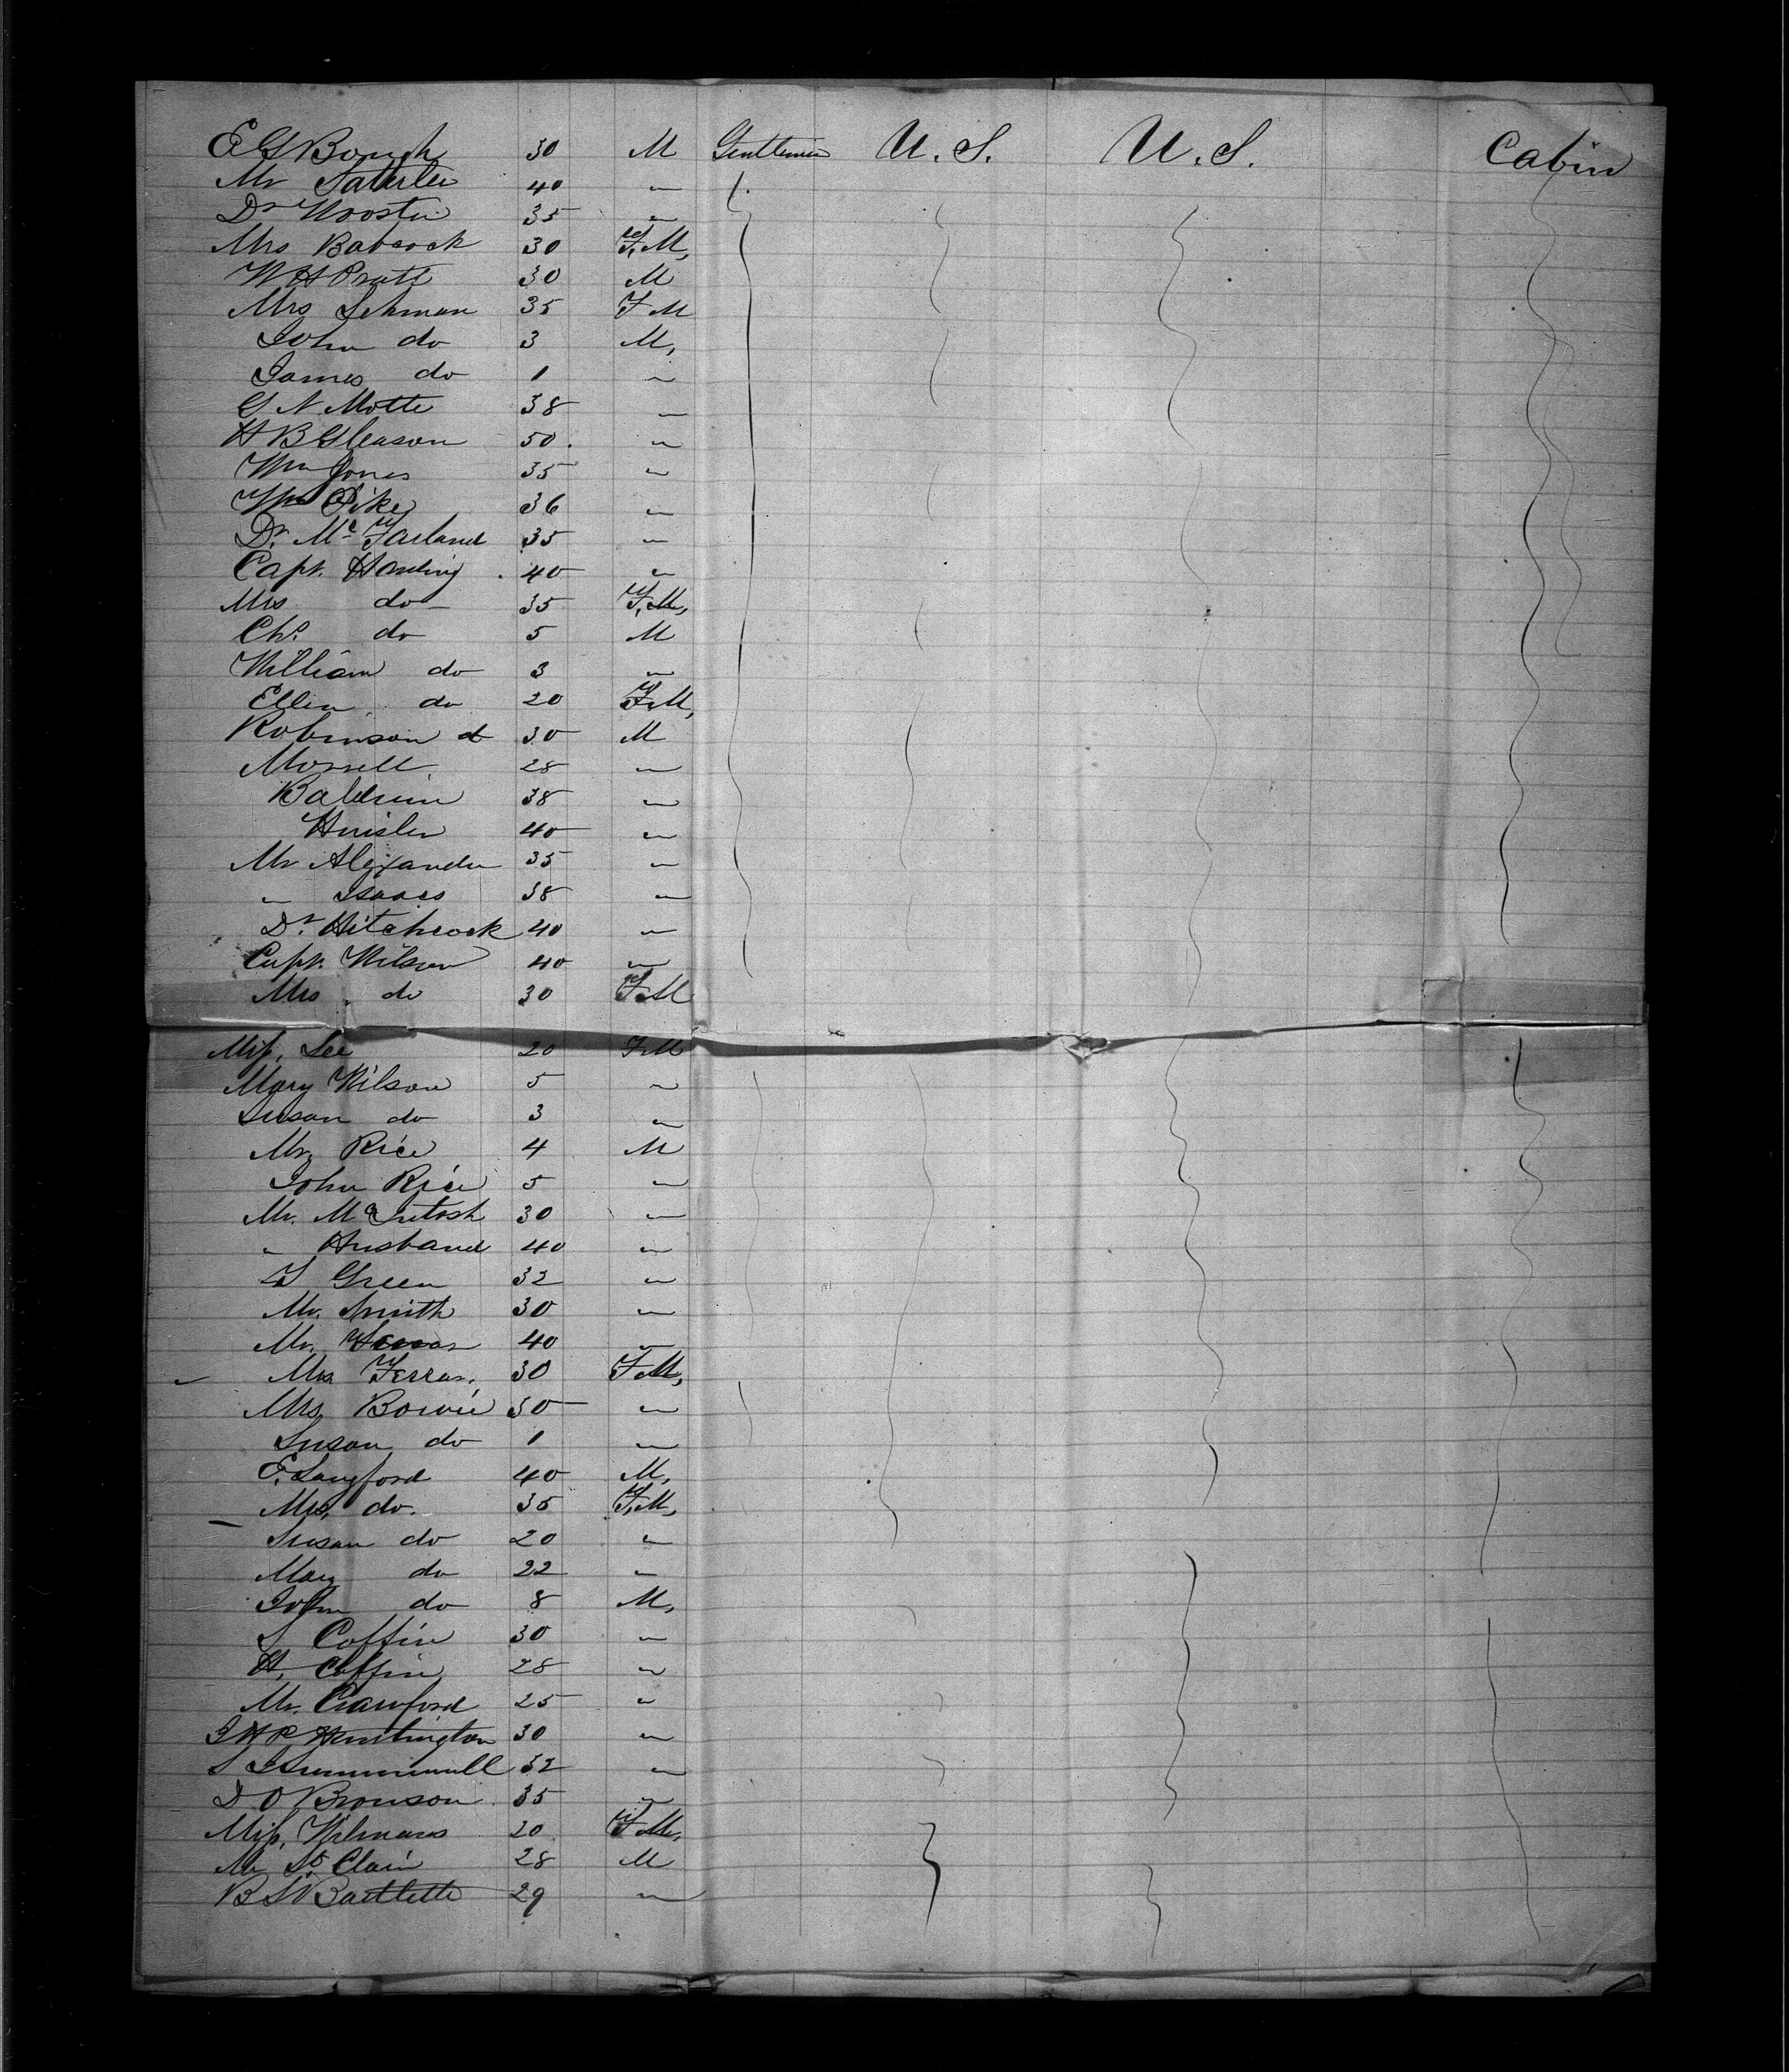 E G Bough 30 M Gentlemen U. S. U. S. Cabin
Mr Satterlee 40 "
Dr Wooster 35 "
Mrs Babcock 30 F, M,
W H Pratt 30 M
Mrs Lehman 35 F M
John do 3 M,
James do 1 "
G N Motte 38 "
H B Gleason 50. "
Wm Jones 35 "
Wm Pike 36 "
Dr. Mc Farland 35 "
Capt. Harding 40 "
Mrs do 35 F, M,
Chs. do 5 M
William do 3 "
Ellen do 20 F M,
Robinson d 30 M
Morrell 28 "
Baldwin 38 "
40 "
Mr Alexander 35 "
" Isaacs 38 "
Dr. Hitchcock 40 "
Capt. Wilson 40 "
Mrs. do 30 F. M
Miss, Lee 20 F M
Mary Wilson 5 "
Susan do 3 "
Mr. Rice 4 M
John Rice 5 "
Mr. McIntosh 30 "
" Husband 40 "
S Green 32 "
Mr. Smith 30 "
Mr. 40 "
Mrs Ferras. 30 F M,
Mrs, Bowie 30 "
Susan do 1 "
E. Langford 40 M,
Mrs, do. 35 F, M,
Susan do 20 "
Mary do 22 "
John do 8 M,
S Coffin 30 "
H, Coffin 28 "
Mr. Crawford 25 "
J H P Huntington 30 "
S 32 "
D O Bronson 35 "
Miss, Wilmans 20 F M,
Mr St Clair 28 M
B S Bartlette 29 "